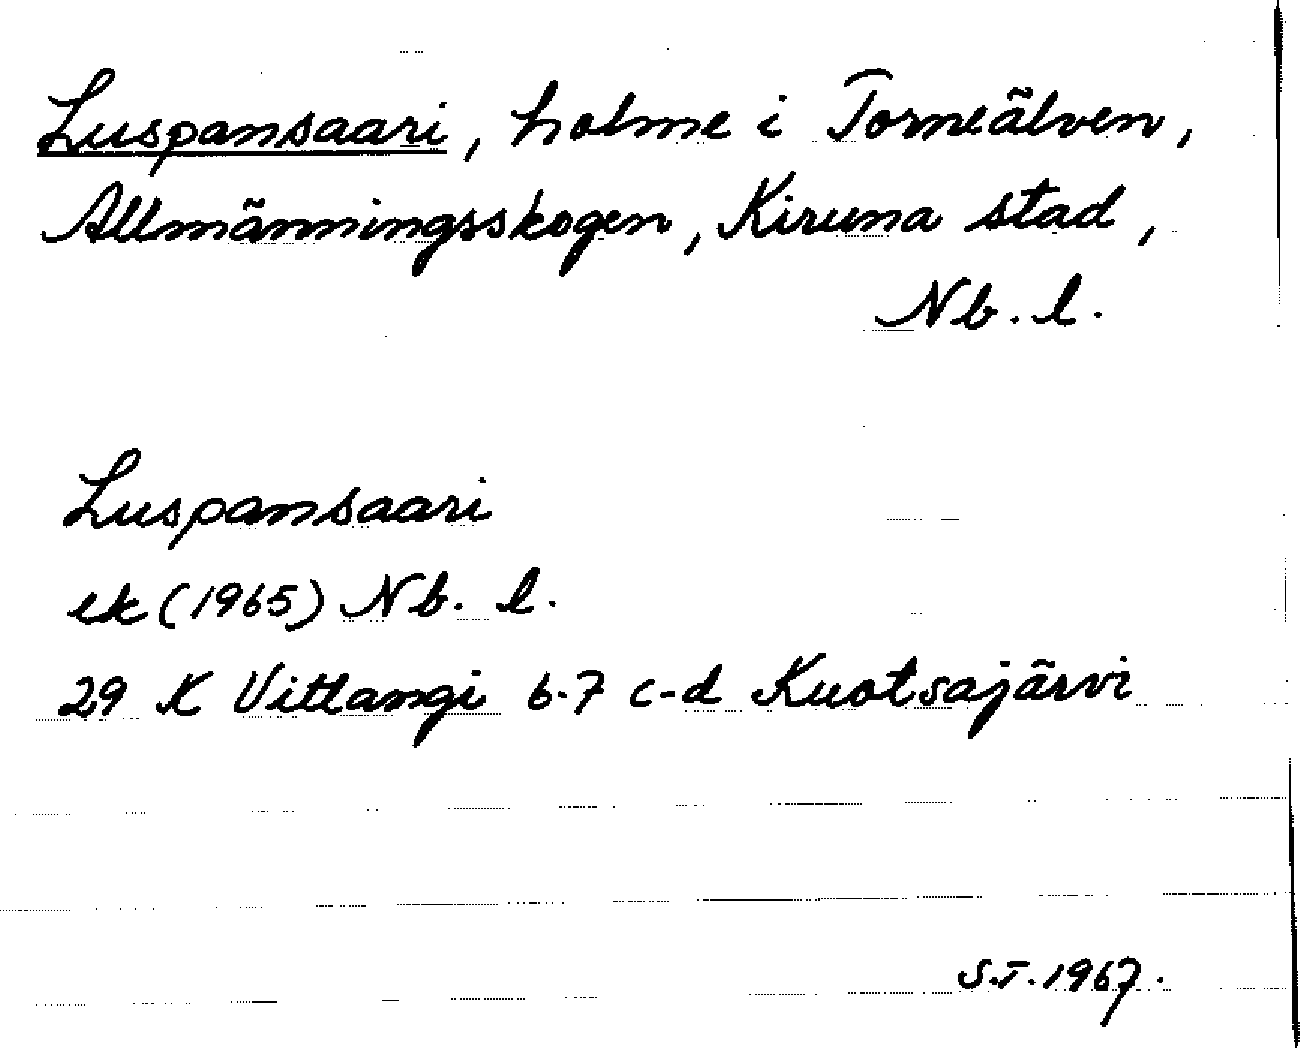 Luspansaari, holme i Torneälven,
Allmänningsskogen, Kiruna stad,
Nb. l.
Luspansaari
ek (1965) Nb. l.
29 K Vittangi 6-7 c-d Kuotsajärvi
S.T. 1967.